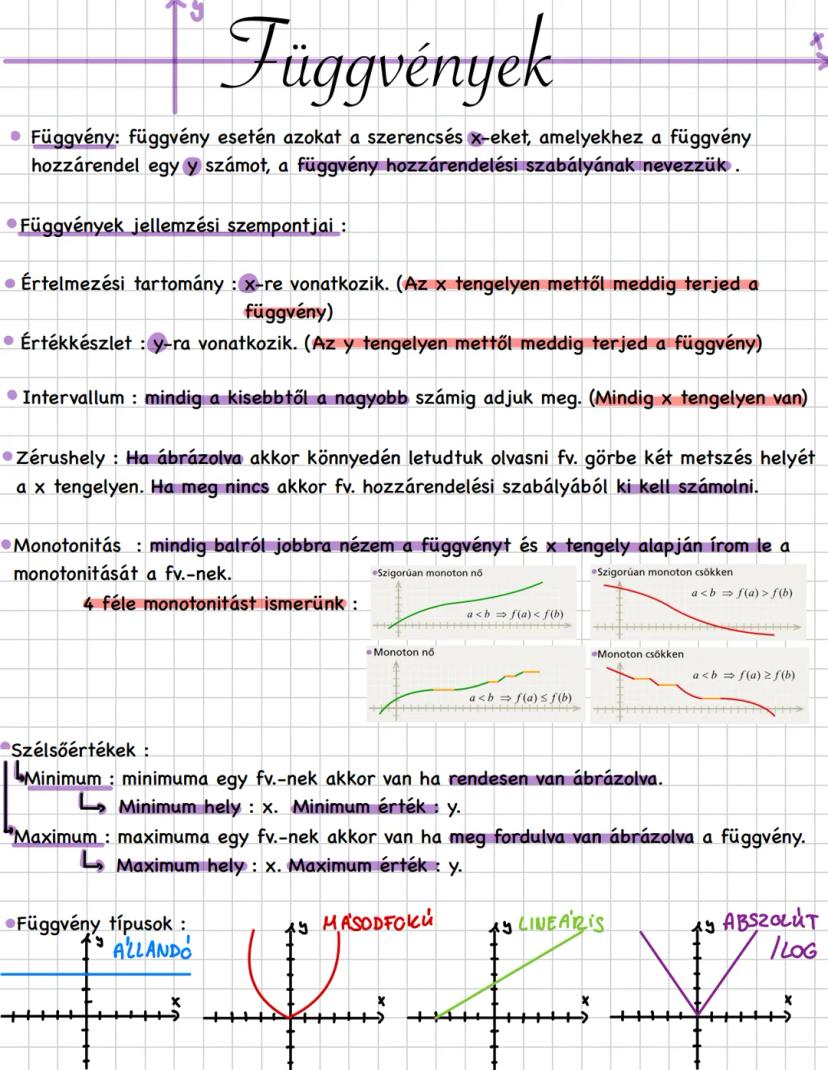 y
x
Függvények
• Függvény: függvény esetén azokat a szerencsés x-eket, amelyekhez a függvény
hozzárendel egy y számot, a függvény hozzárendelési szabályának nevezzük .
• Függvények jellemzési szempontjai :
• Értelmezési tartomány : x-re vonatkozik. (Az x tengelyen mettől meddig terjed a
függvény)
• Értékkészlet : y-ra vonatkozik. (Az y tengelyen mettől meddig terjed a függvény)
• Intervallum : mindig a kisebbtől a nagyobb számig adjuk meg. (Mindig x tengelyen van)
• Zérushely : Ha ábrázolva akkor könnyedén letudtuk olvasni fv. görbe két metszés helyét
a x tengelyen. Ha meg nincs akkor fv. hozzárendelési szabályából ki kell számolni.
• Monotonitás : mindig balról jobbra nézem a függvényt és x tengely alapján írom le a
monotonitását a fv.-nek.
4 féle monotonitást ismerünk :
• Szigorúan monoton nő
a < b ⇒ f(a) < f(b)
• Szigorúan monoton csökken
a < b ⇒ f(a) > f(b)
• Monoton nő
a < b ⇒ f(a) ≤ f(b)
• Monoton csökken
a < b ⇒ f(a) ≥ f(b)
• Szélsőértékek :
Minimum : minimuma egy fv.-nek akkor van ha rendesen van ábrázolva.
Minimum hely : x. Minimum érték : y.
Maximum : maximuma egy fv.-nek akkor van ha meg fordulva van ábrázolva a függvény.
Maximum hely : x. Maximum érték : y.
• Függvény típusok :
y
ÁLLANDÓ
x
y
MÁSODFOKÚ
x
y
LINEÁRIS
x
y
ABSZOLÚT
/LOG
x